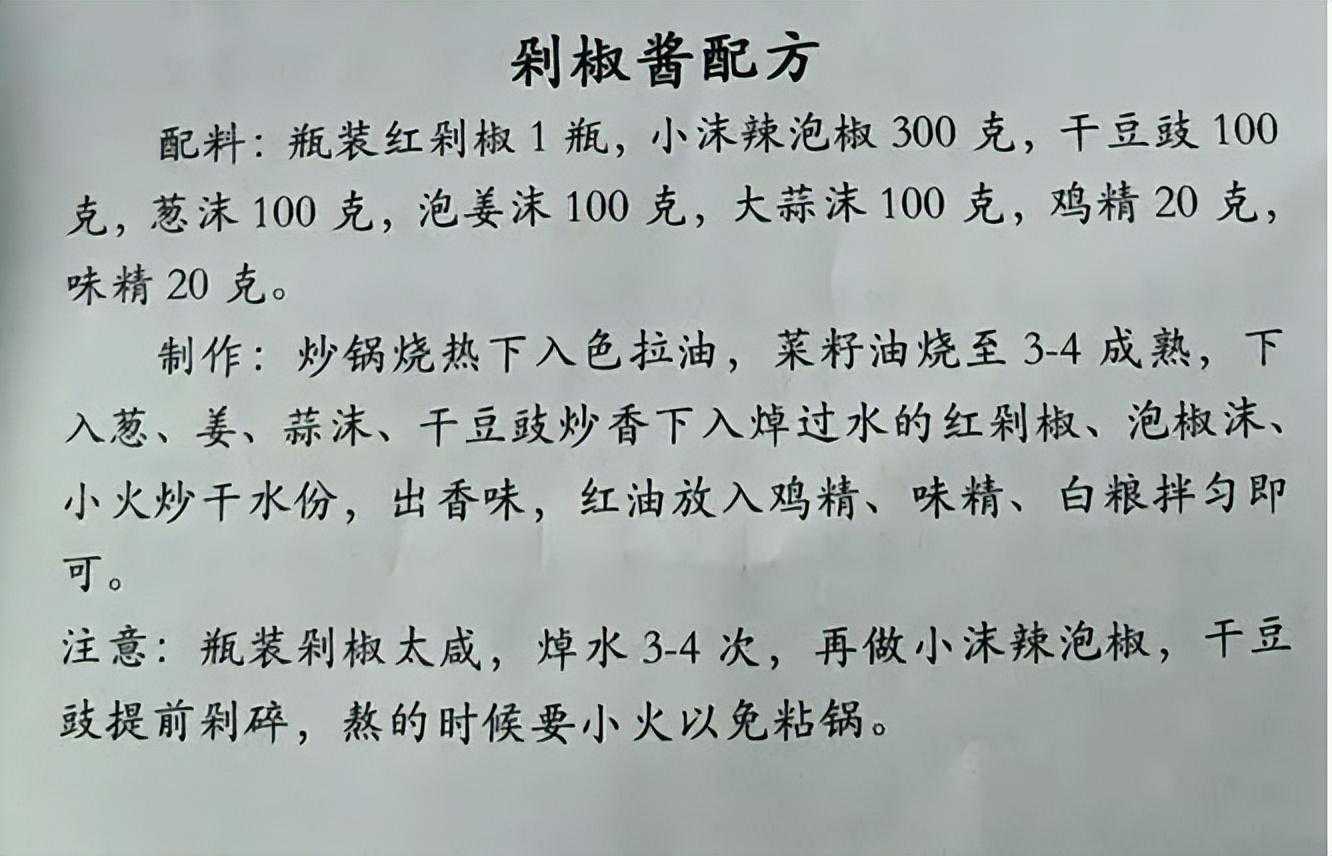 剁椒酱配方
配料：瓶装红剁椒 1 瓶，小沫辣泡椒 300 克，干豆豉 100
克，葱沫 100 克，泡姜沫 100 克，大蒜沫 100 克，鸡精 20 克，
味精 20 克。
制作：炒锅烧热下入色拉油，菜籽油烧至 3-4 成熟，下
入葱、姜、蒜沫、干豆豉炒香下入焯过水的红剁椒、泡椒沫、
小火炒干水份，出香味，红油放入鸡精、味精、白粮拌匀即
可。
注意：瓶装剁椒太咸，焯水 3-4 次，再做小沫辣泡椒，干豆
豉提前剁碎，熬的时候要小火以免粘锅。